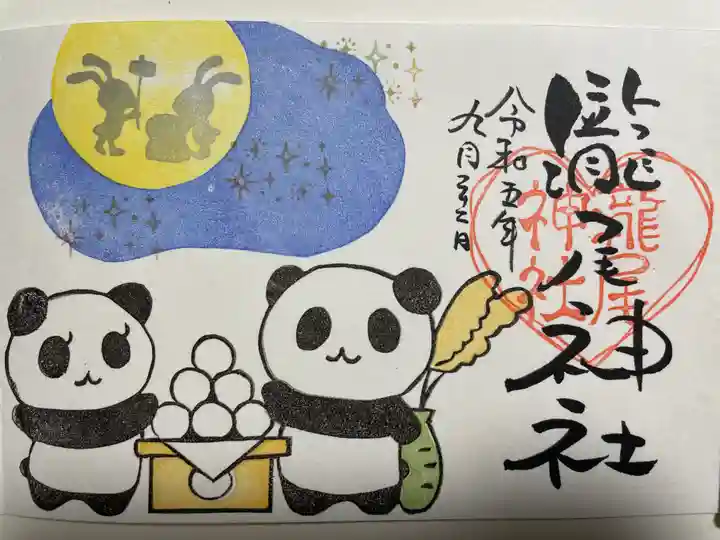 龍尾神社
令和五年
九月 日
龍尾
神社